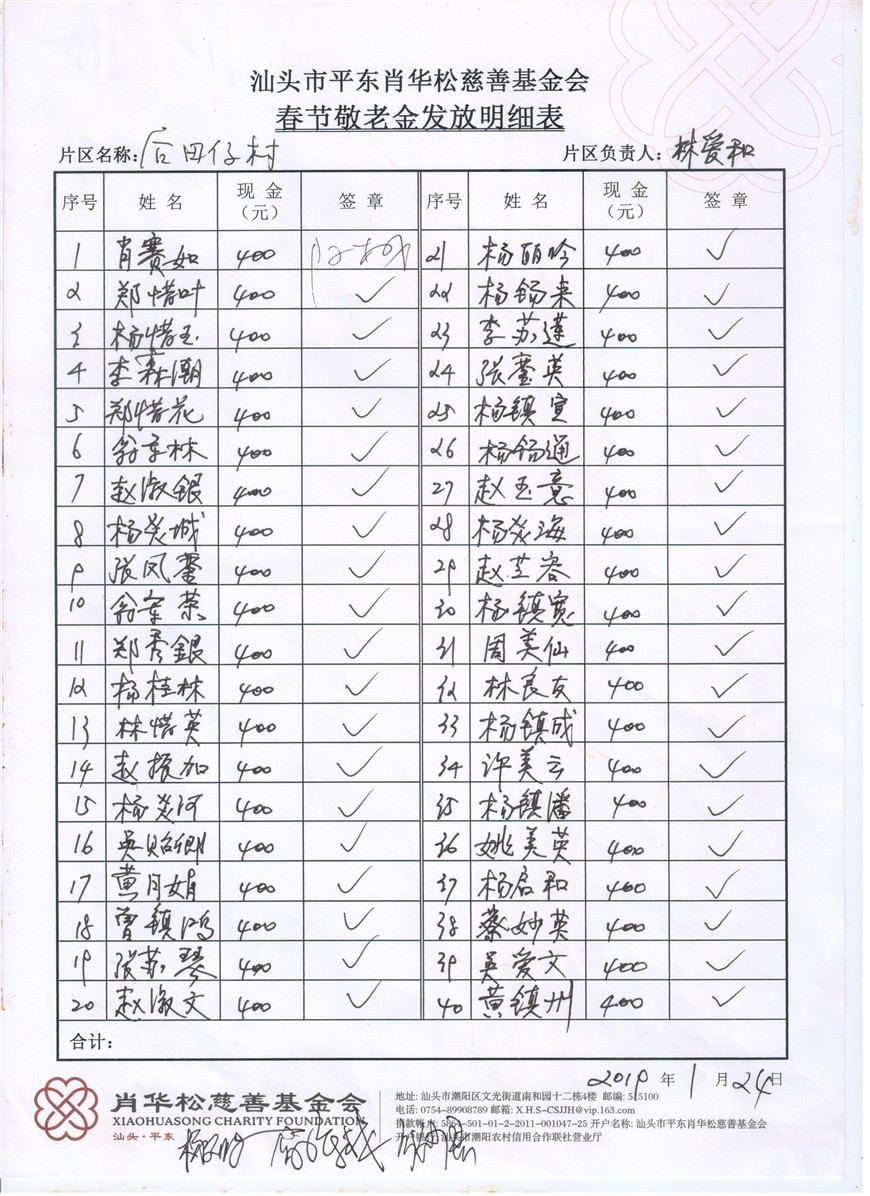 汕头市平东肖华松慈善基金会
春节敬老金发放明细表
片区名称: 后田仔村 片区负责人: 林爱和
序号 姓名 现金（元） 签章 序号 姓名 现金（元） 签章
1 肖赛如 400 21 杨丽吟 400 ✓
2 郑惜叶 400 ✓ 22 杨锡来 400 ✓
3 杨惜玉 400 ✓ 23 李苏莲 400 ✓
4 李森潮 400 ✓ 24 张蜜英 400 ✓
5 郑惜花 400 ✓ 25 杨镇宣 400 ✓
6 翁亭林 400 ✓ 26 杨锡通 400 ✓
7 赵淑銀 400 ✓ 27 赵玉意 400 ✓
8 杨炎城 400 ✓ 28 杨炎海 400 ✓
9 张凤銮 400 ✓ 29 赵芝容 400 ✓
10 翁荣 400 ✓ 30 杨镇宽 400 ✓
11 郑秀銀 400 ✓ 31 周美仙 400 ✓
12 杨桂林 400 ✓ 32 林良友 400 ✓
13 林惜英 400 ✓ 33 杨镇成 400 ✓
14 赵振加 400 ✓ 34 许美云 400 ✓
15 杨炎河 400 ✓ 35 杨镇潘 400 ✓
16 吳贻卿 400 ✓ 36 姚美英 400 ✓
17 黄月娟 400 ✓ 37 杨启和 400 ✓
18 曾镇鸿 400 ✓ 38 蔡妙英 400 ✓
19 张苏琴 400 ✓ 39 吳爱文 400 ✓
20 赵淑文 400 ✓ 40 黄镇州 400 ✓
合计:
2019 年 1 月 24 日
肖华松慈善基金会
XIAOHUASONG CHARITY FOUNDATION
汕头·平东
地址: 汕头市潮阳区文光街道南和园十二栋4楼 邮编: 515100
电话: 0754-89908789 邮箱: X.H.S-CSJJH@vip.163.com
捐款帐号: 5864-501-01-2-2011-001047-25 开户名称: 汕头市平东肖华松慈善基金会
开户银行: 汕头市潮阳农村信用合作联社营业厅